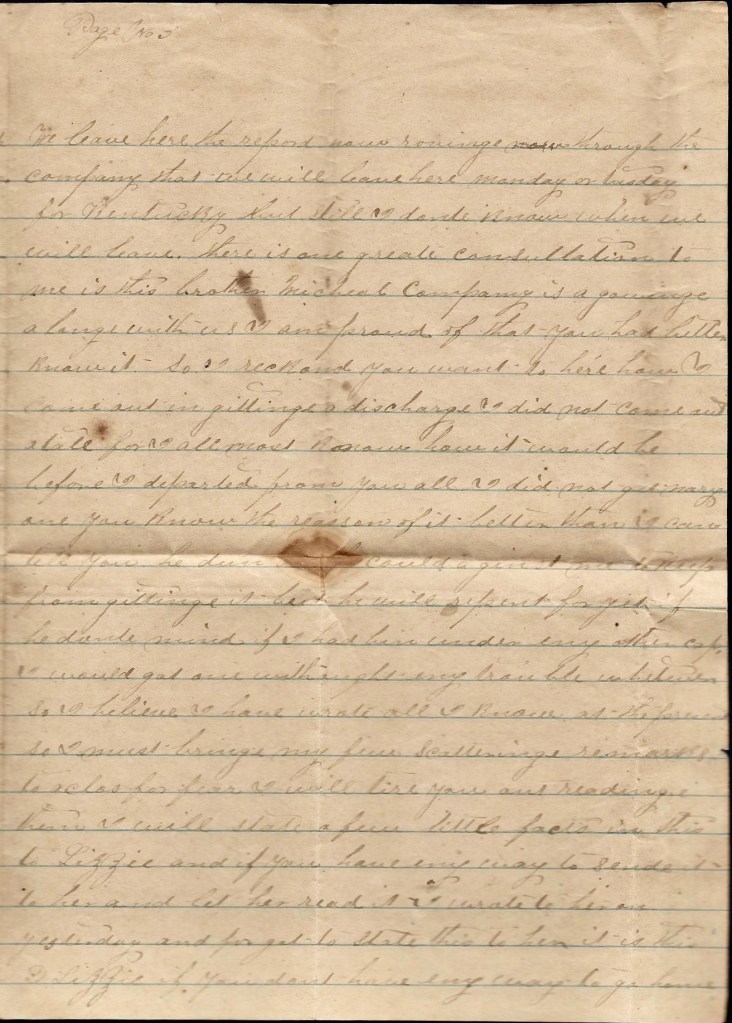 Page No 3
We leave here the report now roninge now through the
company that we will leave here monday or tusday
for Kentucky but still I donte know when we
will leave. there is one greate consullation to
me is this brother Micheal Company is a gowinge
alonge with us I am proud of that you had better
know it so I reckand you want to here how I
came out in gittinge a discharge I did not come out
atall for I allmost know how it would be
before I departed from you all I did not get nary
one you know the reason of it better than I can
tell you he dun could aginst me to keep
from gittinge it but he will repent for yit if
he donte mind if I had bin under eny other cap.
I would got one withought eny trouble whatever
so I believe I have wrate all I know at the present
so I must bringe my few scatteringe remarks
to aclos for fear I will tire you out readinge
them I will state a few little facts in this
to Lizzie and if you have eny way to sende it
to her and let her read it I wrate to her on
yesterday and forgot to state this to her it is this
D Lizzie if you dont have eny way to go home